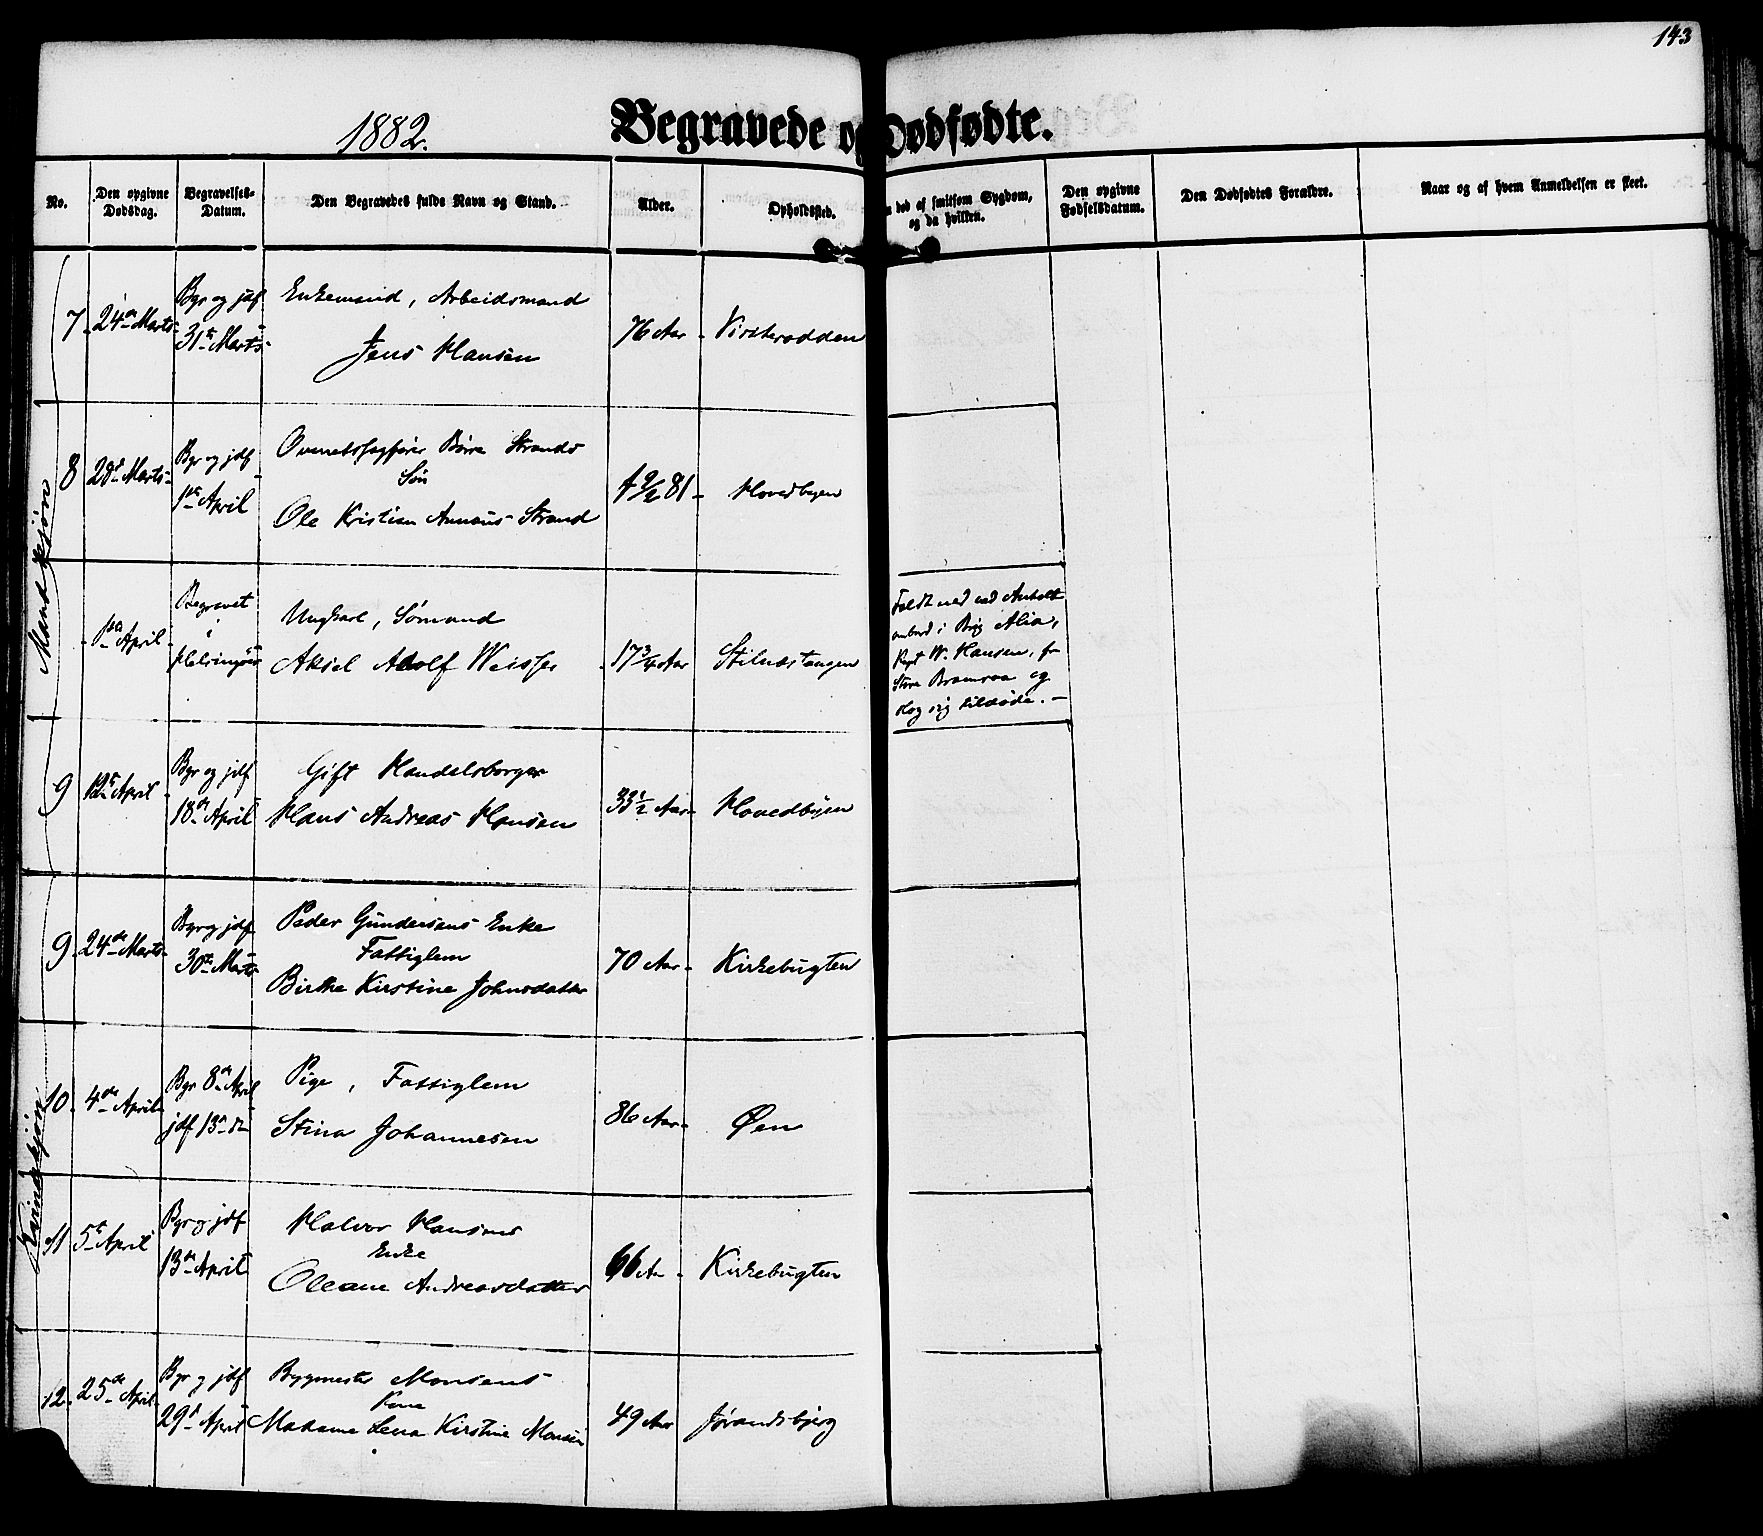 143
1882.
Begravede og Dødfødte.
No.
Den opgivne Dødsdag.
Begravelses-Datum.
Den Begravedes fulde Navn og Stand.
Alder.
Opholdssted.
død af smitsom Sygdom, og da hvilken.
Den opgivne Fødselsdatum.
Den Dødfødtes Forældre.
Naar og af hvem Anmeldelsen er skeet.
Mandkjøn
7. 24de Marts
Bgr og jdf
31te Marts
Enkemand, Arbeidsmand
Jens Hansen
76 Aar
8 28de Marts
Bgr og jdf
1ste April
Børre Strands
Søn
Ole Kristian Strand
f 9/2 81
Hovedbyen
1ste April
Begravet
i
Helsingør
Ungkarl, Sømand
Aksel Adolf Weisser
17 3/4 Aar
Stilnæstangen
Faldt ned ved Anholt
ombord i Brig Alia,
Kapt W. Hansen, fr
Store og
slog sig tildøde.
9 12te April
Bgr og jdf
18de April
Gift Handelsborger
Hans Andreas Hansen
33 1/2 Aar
Hovedbyen
Kvindekjøn
9. 24de Marts
Bgr og jdf
30te Marts
Peder Gundersens Enke
Fattiglem
Birthe Kirstine Johnsdatter
70 Aar
Kirkebugten
10. 4de April
Bgr 8de April
jdf 13de
Pige, Fattiglem
Stina Johannesen
86 Aar
Øen
11 5te April
Bgr og jdf
13de April
Halvor Hansens
Enke
Oleane Andreasdatter
66 Aar
Kirkebugten
12. 25de April
Bgr og jdf
29de April
Bygmester Monsens
Kone
Madame Lena Kirstine Monsen
49 Aar
Jørandsbjerg